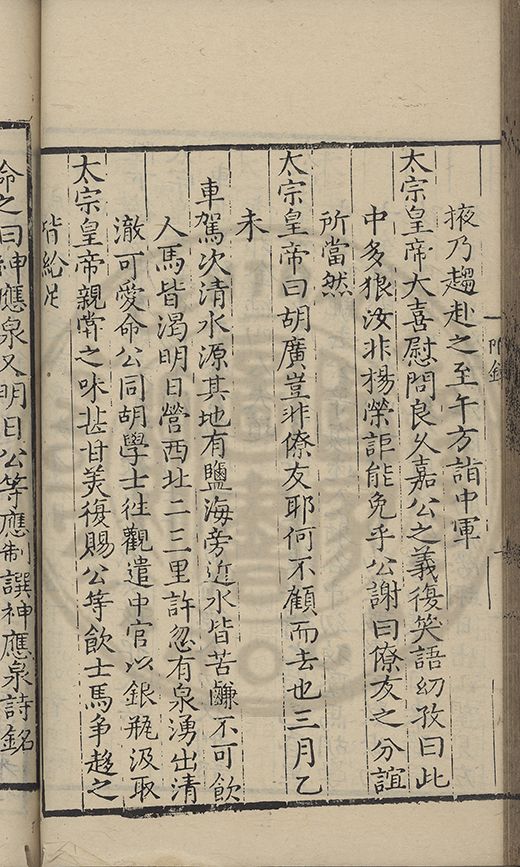 掖乃趨赴之至午方詣中軍
太宗皇帝大喜慰問良久嘉公之義復笑語幼孜曰此
中多狼汝非楊榮詎能免乎公謝曰僚友之分誼
所當然
太宗皇帝曰胡廣豈非僚友耶何不顧而去也三月乙
未
車駕次清水源其地有鹽海旁近水皆苦鹹不可飲
人馬皆渴明日營西北二三里許忽有泉湧出清
澈可愛命公同胡學士徃觀遣中官以銀瓶汲取
太宗皇帝親甞之味甚甘美復賜公等飲士馬争趨之
皆給足
命之曰神應泉又明日公等應制譔神應泉詩銘
附錄